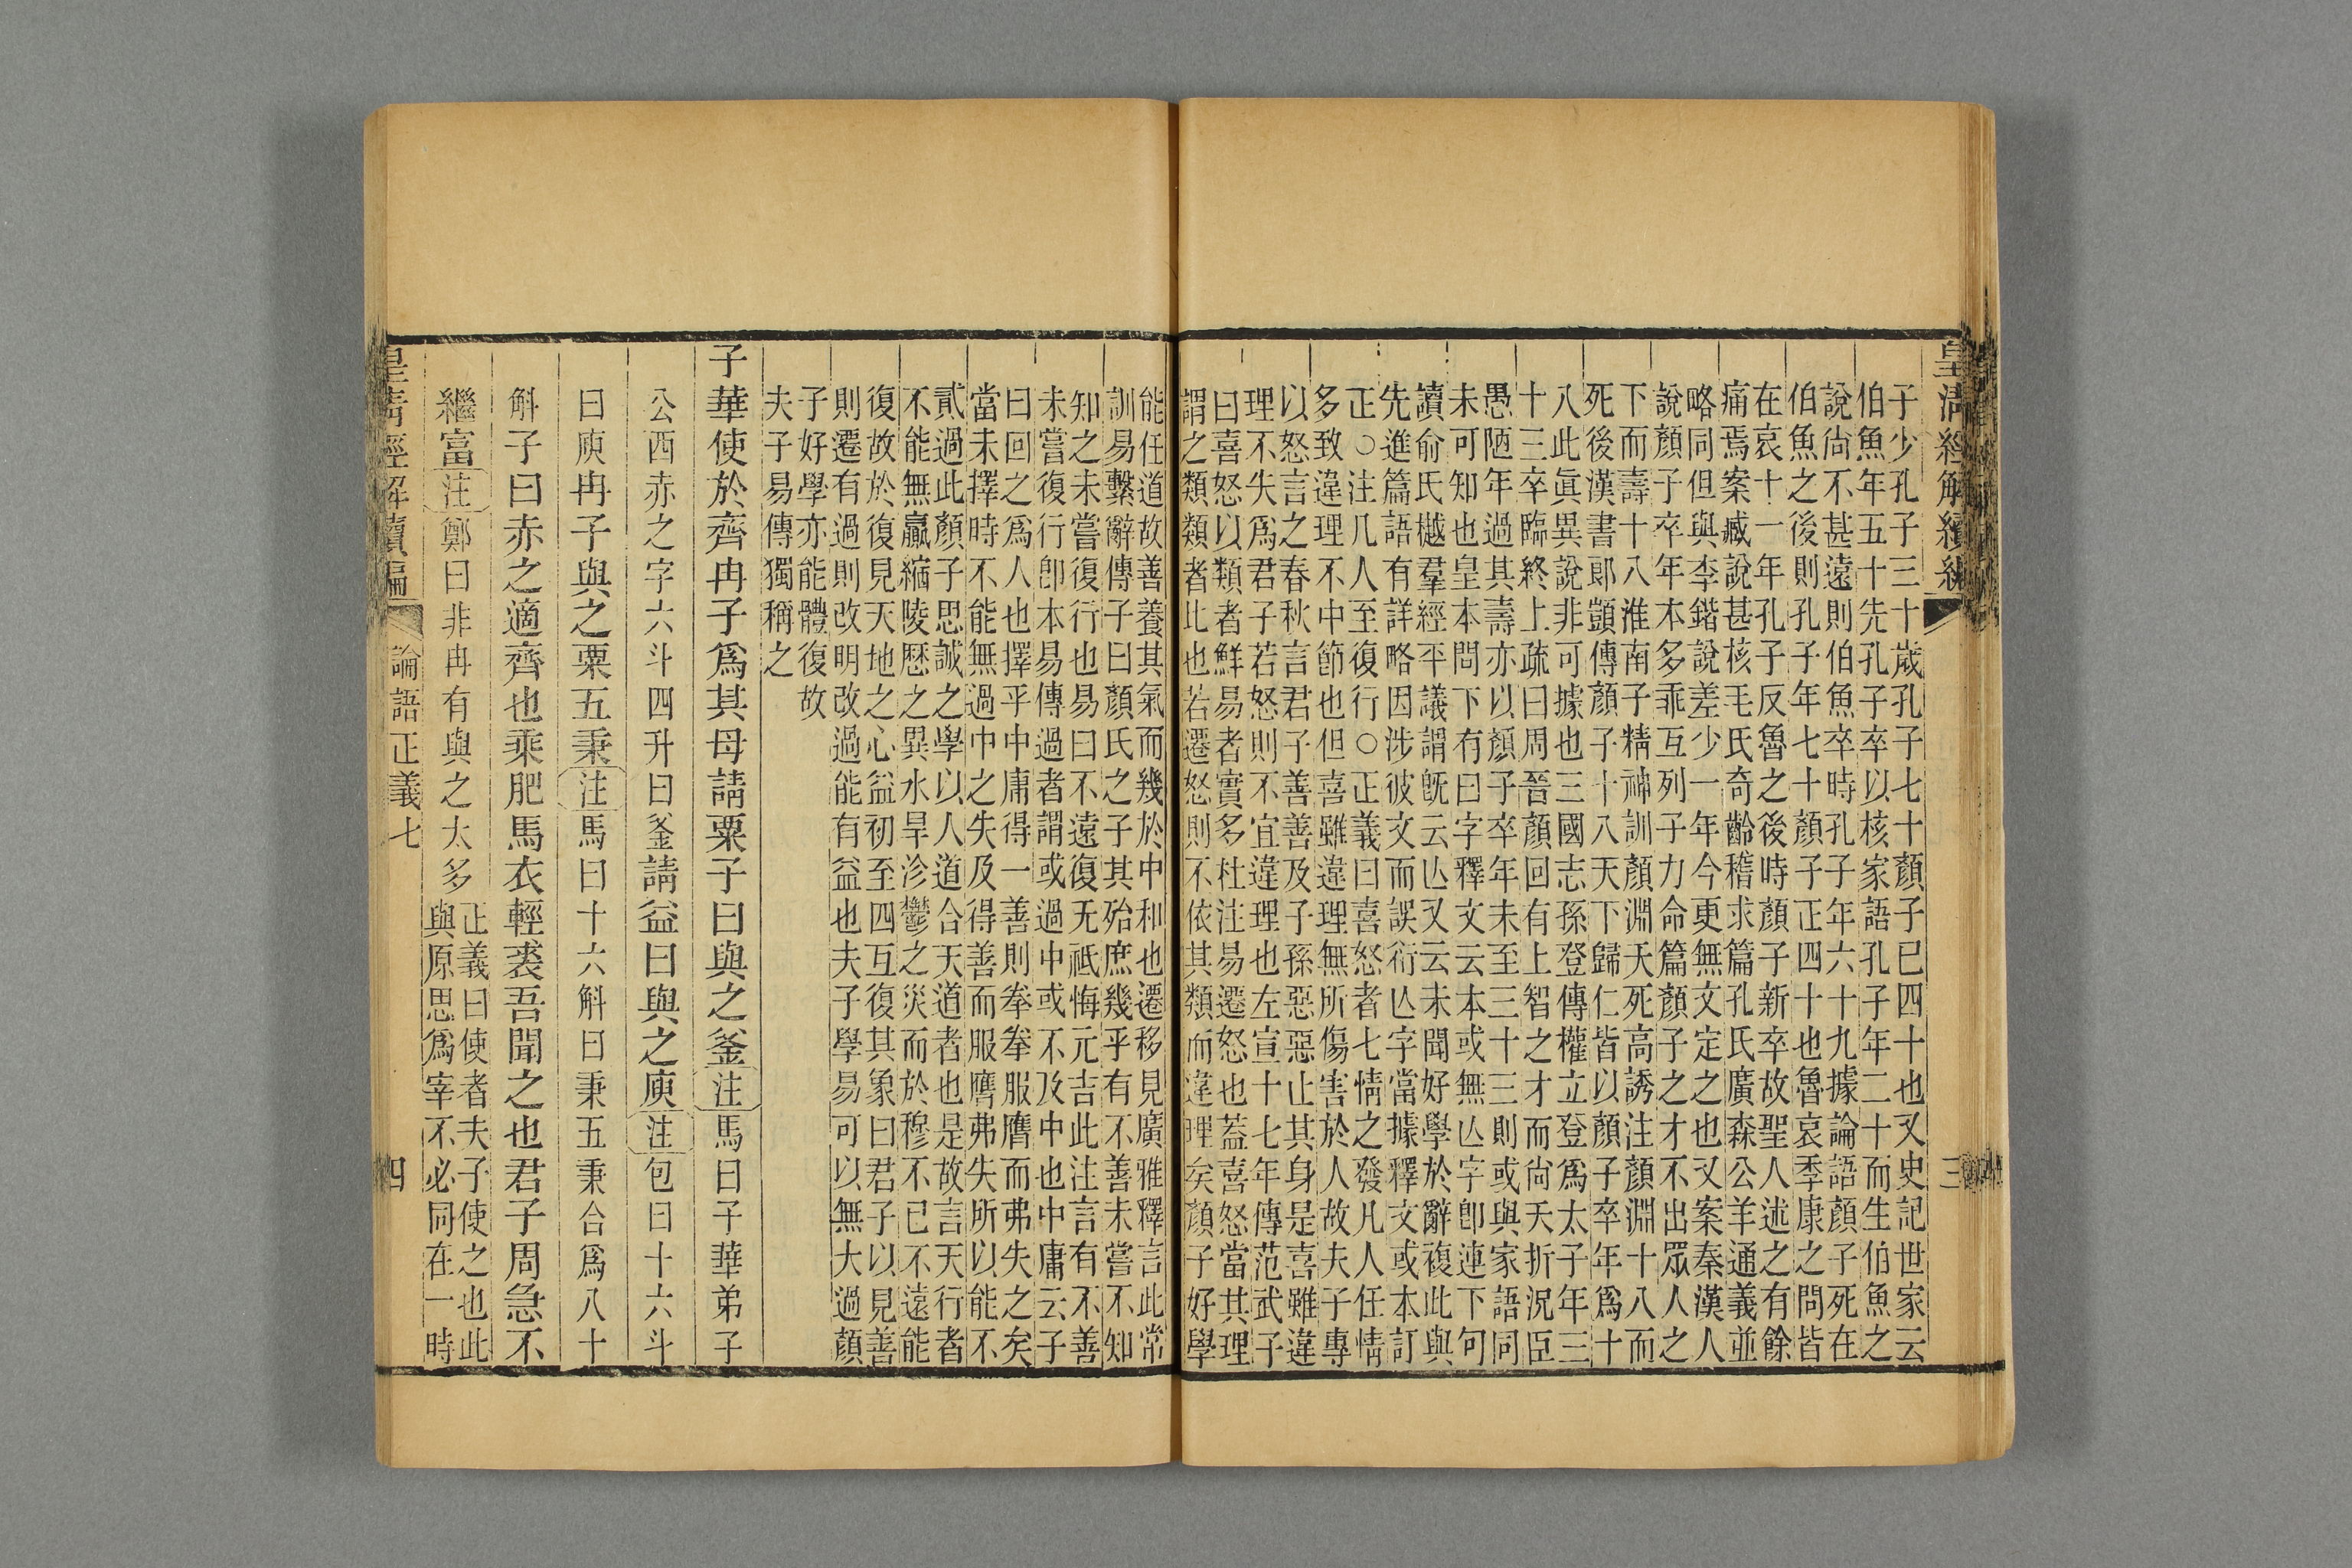 皇清經解續編
三
于少孔子三十歲孔子七十顏子已四十也又史記世家云
伯魚年五十先孔子卒以核家語孔子年二十而生伯魚之
說尙不甚遠則伯魚卒時孔子年六十九據論語顏子死在
伯魚之後則孔子年七十顏子正四十也魯哀季康之問皆
在哀十一年孔子反魯之後時顏子新卒故聖人述之有餘
痛焉案臧說甚核毛氏奇齡稽求篇孔氏廣森公羊通義並
略同但與李鍇說差少一年今更無文定之也又案秦漢人
說顏子卒年本多乖互列子力命篇顏子之才不出眾人之
下而壽十八淮南子精神訓顏淵夭死高誘注顏淵十八而
死後漢書郎顗傳顏子十八天下歸仁皆以顏子卒年爲十
八此眞異說非可據也三國志孫登傳權立登爲太子年三
十三卒臨終上疏曰周晉顏回有上智之才而尙夭折況臣
愚陋年過其壽亦以顏子卒年未至三十三則或與家語同
未可知也皇本問下有曰字釋文云本或無亾字卽連下句
讀俞氏樾羣經平議謂旣云亾又云未聞好學於辭複此與
先進篇語有詳略因涉彼文而誤衍亾字當據釋文或本訂
正○注凡人至復行○正義曰喜怒者七情之發凡人任情
多致違理不中節也但喜雖違理無所傷害於人故夫子專
以怒言之春秋言君子善善及子孫惡惡止其身是喜雖違
理不失爲君子若怒則不宜違理也左宣十七年傳范武子
曰喜怒以類者鮮易者實多杜注易遷怒也蓋喜怒當其理
謂之類類者比也若遷怒則不依其類而違理矣顏子好學
能任道故善養其氣而幾於中和也遷移見廣雅釋言此常
訓易繫辭傳子曰顏氏之子其殆庶幾乎有不善未嘗不知
知之未嘗復行也易曰不遠復无祇悔元吉此注言有不善
未嘗復行卽本易傳過者謂或過中或不及中也中庸云子
曰回之爲人也擇乎中庸得一善則拳拳服膺而弗失之矣
當未擇時不能無過中之失及得善而服膺弗失所以能不
貳過此顏子思誠之學以人道合天道者也是故言天行者
不能無贏縮陵歷之異水旱沴鬱之災而於穆不已不遠能
復故於復見天地之心益初至四互復其象曰君子以見善
則遷有過則改明改過能有益也夫子學易可以無大過顏
子好學亦能體復故
夫子易傳獨稱之
子華使於齊冉子爲其母請粟子曰與之釜注馬曰子華弟子
公西赤之字六斗四升曰釜請益曰與之庾注包曰十六斗
曰庾冉子與之粟五秉注馬曰十六斛曰秉五秉合爲八十
斛子曰赤之適齊也乘肥馬衣輕裘吾聞之也君子周急不
繼富注鄭曰非冉有與之太多正義曰使者夫子使之也此
與原思爲宰不必同在一時
皇清經解續編
論語正義七
四